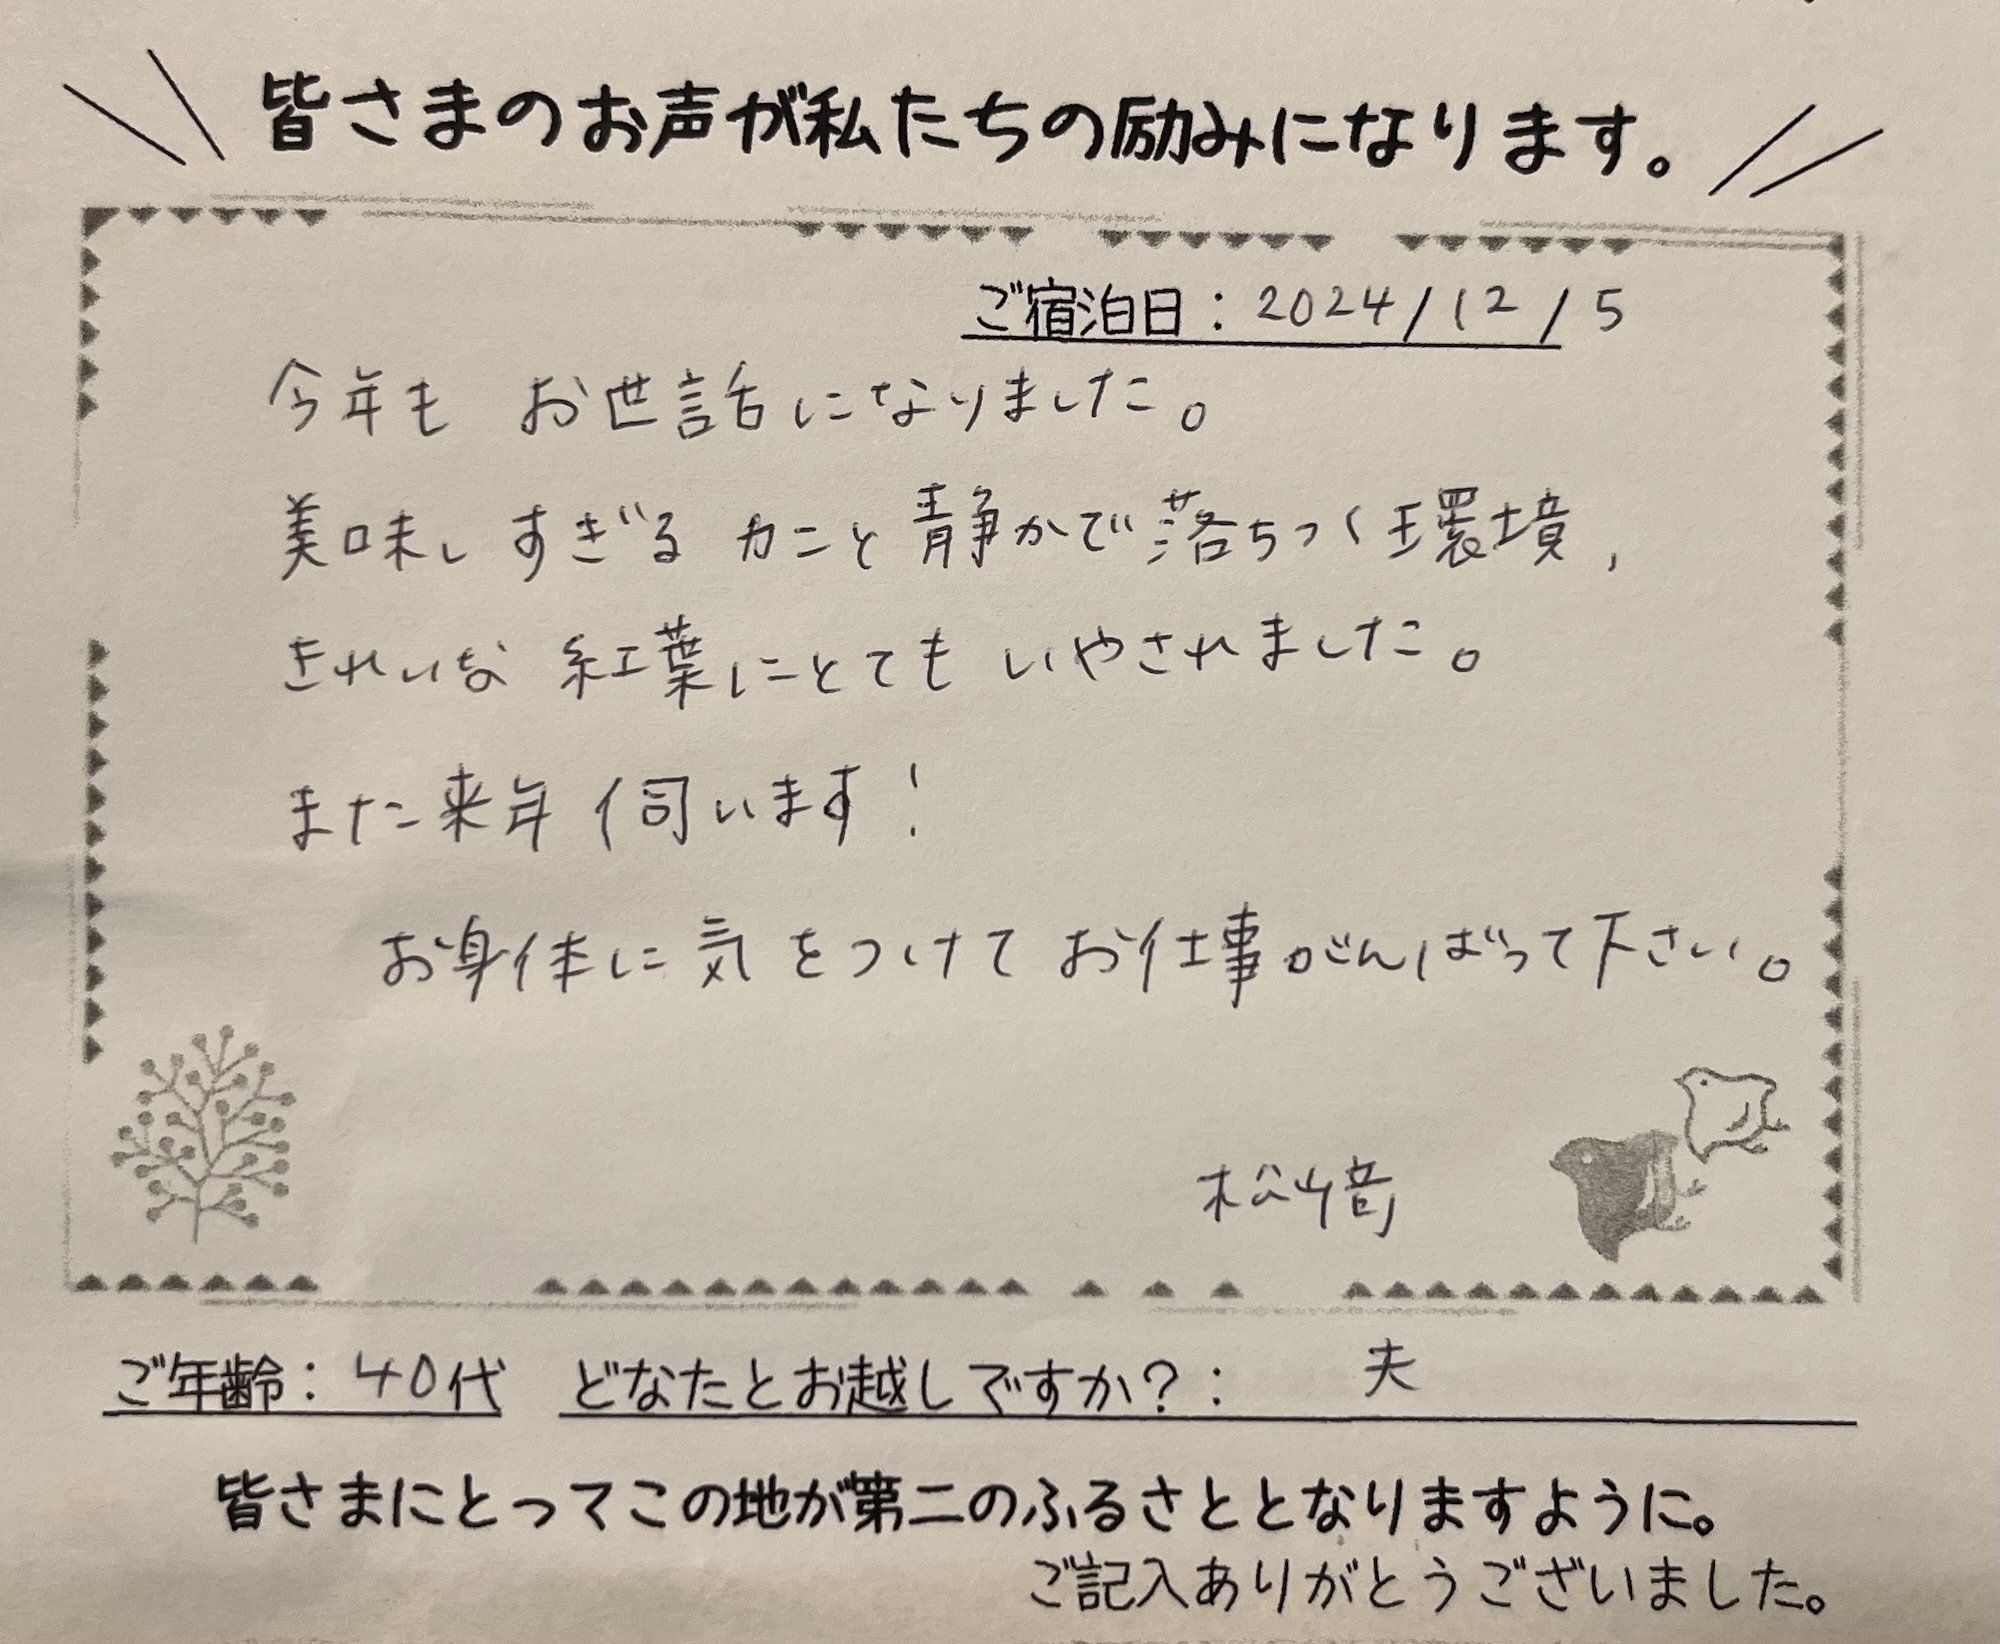 皆さまのお声が私たちの励みになります。
ご宿泊日：2024/12/5
今年も お世話になりました。
美味しすぎる カニと静かで落ちつく環境、
きれいな 紅葉にとても いやされました。
また来年 伺います!
お身体に気をつけて お仕事がんばって下さい。
松﨑
ご年齢：40代 どなたとお越しですか？： 夫
皆さまにとってこの地が第二のふるさととなりますように。
ご記入ありがとうございました。